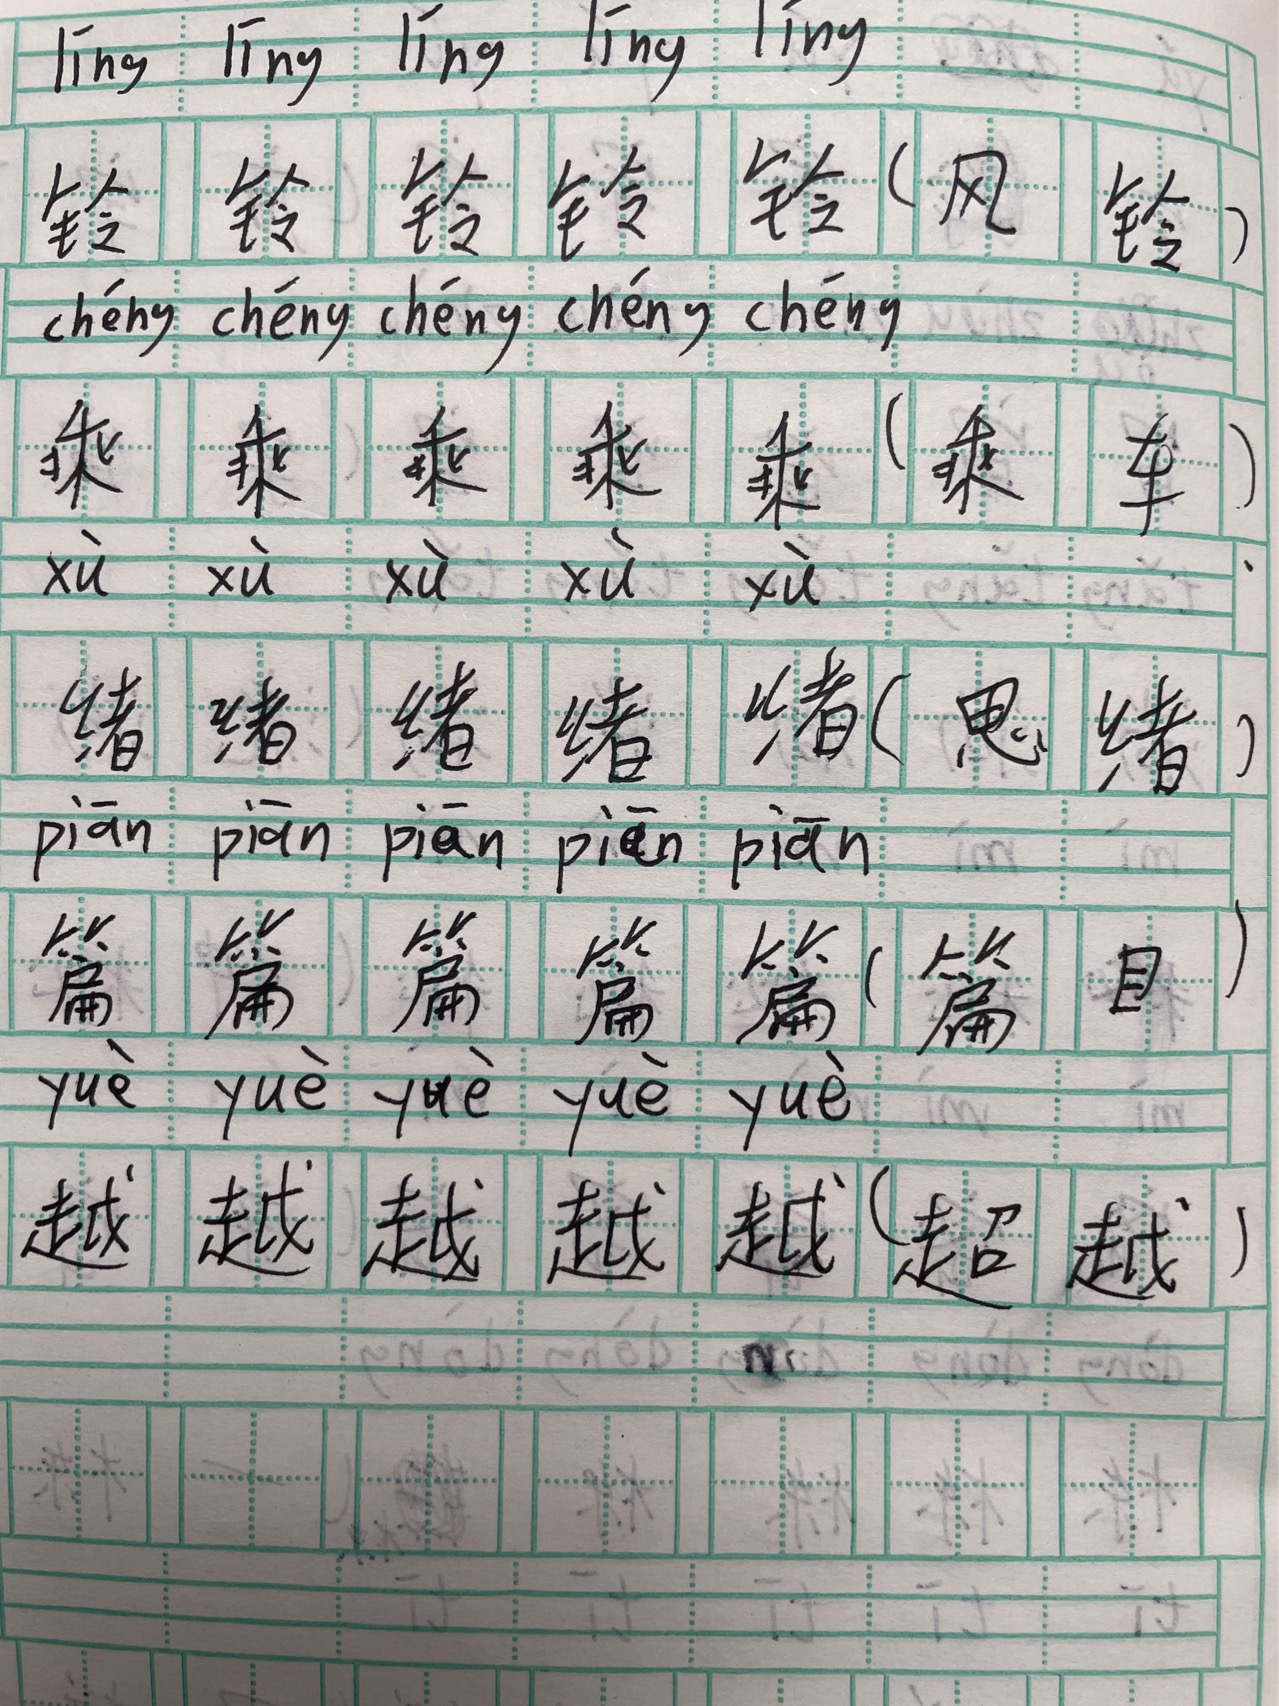 líng líng líng líng líng
铃 铃 铃 铃 铃 ( 风 铃 )
chéng chéng chéng chéng chéng
乘 乘 乘 乘 乘 ( 乘 车 )
xù xù xù xù xù
绪 绪 绪 绪 绪 ( 思 绪 )
piān piān piān piān piān
篇 篇 篇 篇 篇 ( 篇 目 )
yuè yuè yuè yuè yuè
越 越 越 越 越 ( 超 越 )